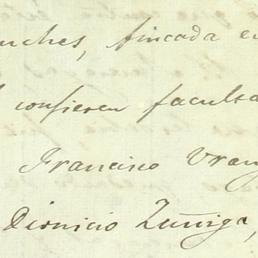 uches, fincada en
confieren faculta
Francisco Vran
Dionicio Zuñiga,